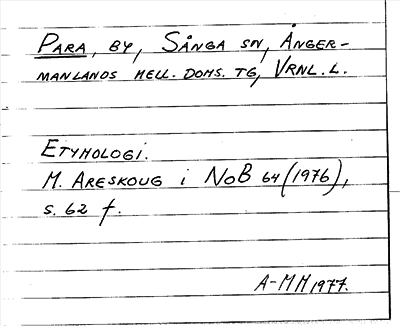 PARA, BY, SÅNGA SN, ÅNGER-
MANLANDS MELL. DOMS. TG, VRNL. L.
ETYMOLOGI.
M. ARESKOUG i NoB 64 (1976),
s. 62 f.
A-MH 1977.